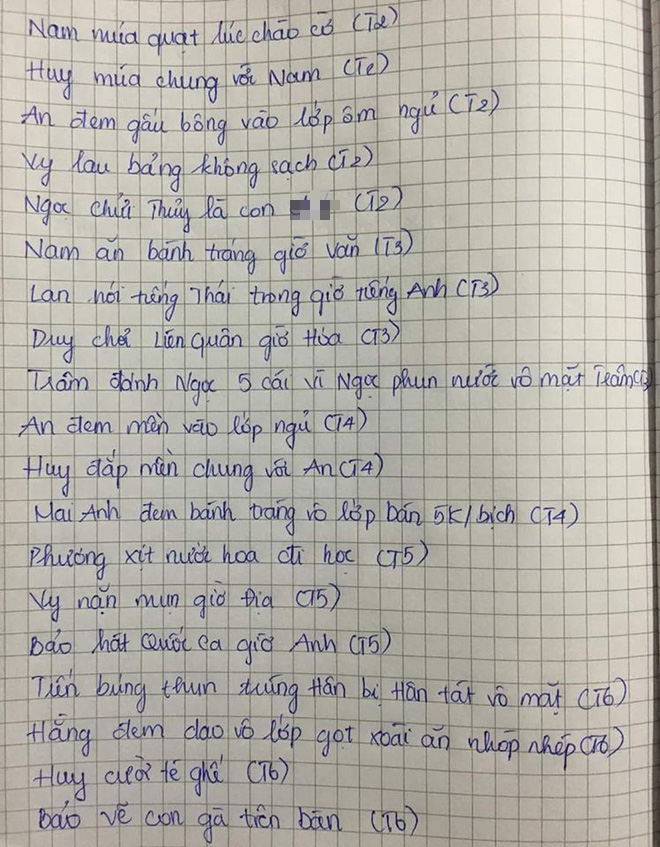 Nam múa quạt lúc chào cờ (T2)
Huy múa chung với Nam (T2)
An đem gấu bông vào lớp ôm ngủ (T2)
Vy lau bảng không sạch (T2)
Ngọc chửi Thủy là con (T2)
Nam ăn bánh tráng giờ văn (T3)
Lan nói tiếng Thái trong giờ tiếng Anh (T3)
Duy chơi Liên Quân giờ Hóa (T3)
Trâm đánh Ngọc 5 cái vì Ngọc phun nước vô mặt Trâm
An đem mền vào lớp ngủ (T4)
Huy đắp mền chung với An (T4)
Mai Anh đem bánh tráng vô lớp bán 5K/bịch (T4)
Phương xịt nước hoa đi học (T5)
Vy nặn mụn giờ Địa (T5)
Bảo hát Quốc ca giờ Anh (T5)
Tiến búng thun trúng Hân bị Hân tát vô mặt (T6)
Hằng đem dao vô lớp gọt xoài ăn nhóp nhép (T6)
Huy cười té ghế (T6)
Bảo vẽ con gà trên bàn (T6)